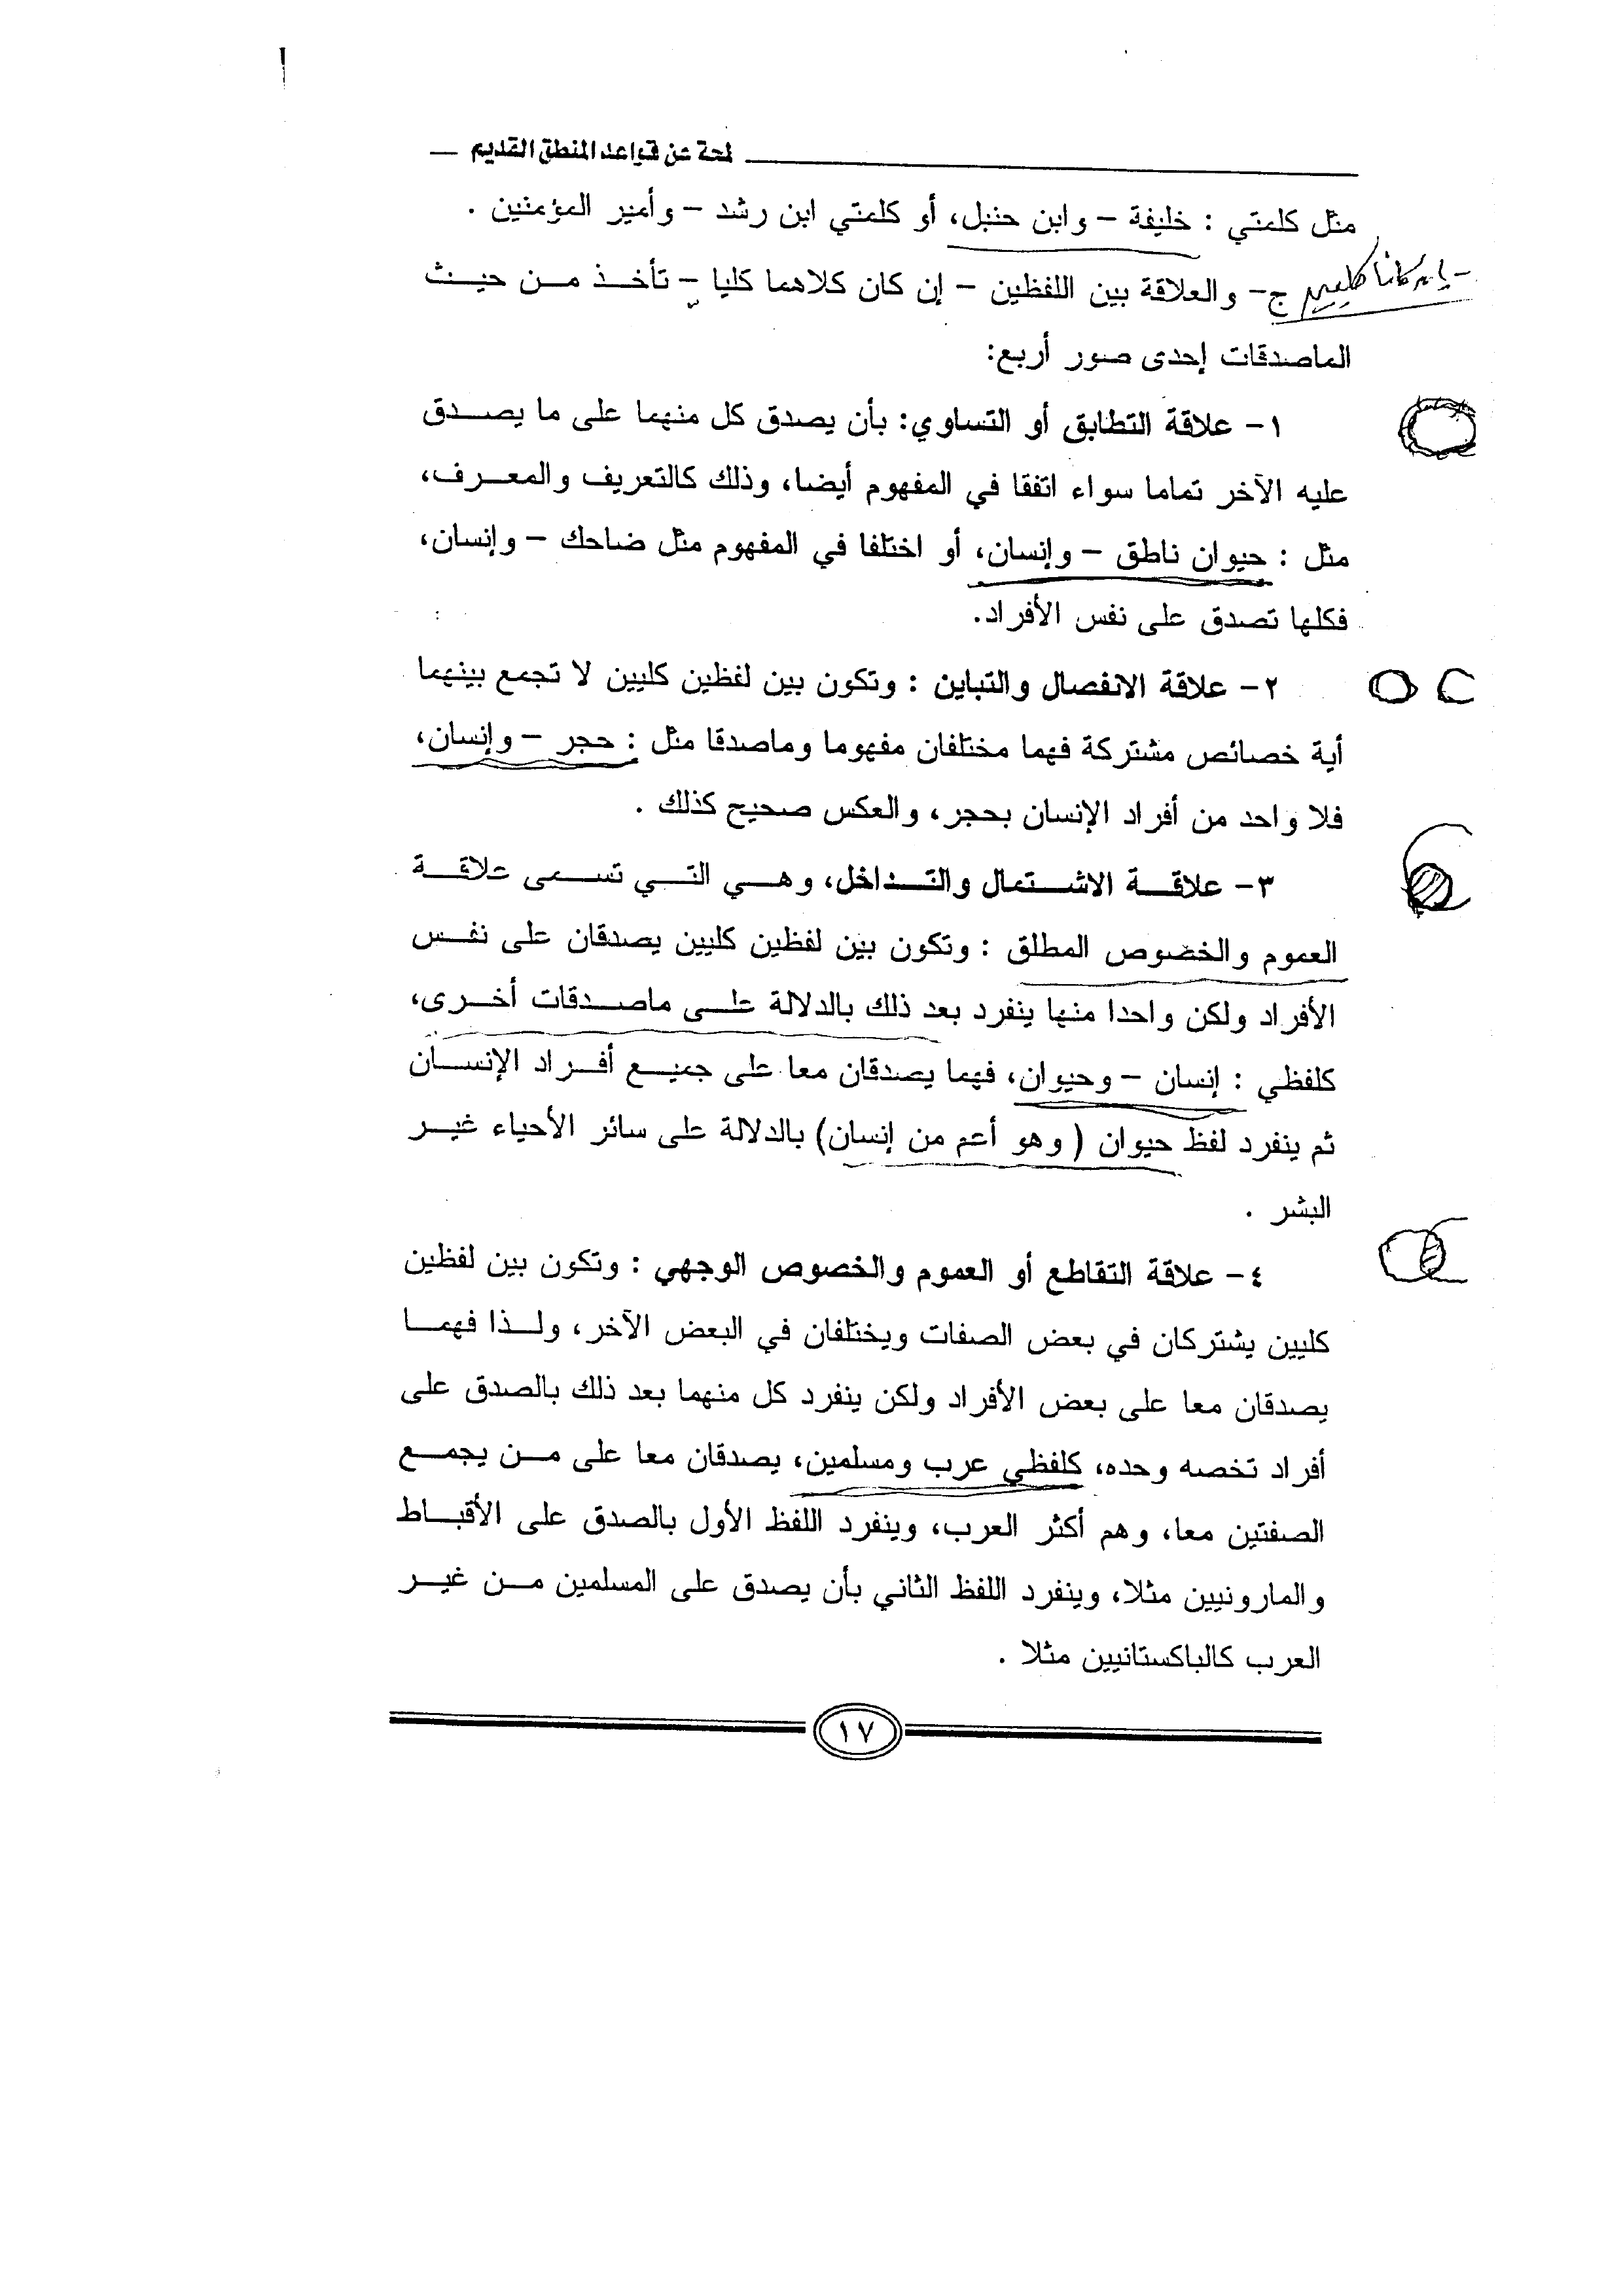 لمحة عن قواعد المنطق القديم
مثل كلمتي : خليفة – وابن حنبل، أو كلمتي ابن رشد – وأمير المؤمنين .
- إن كانا كليين
ج- والعلاقة بين اللفظين – إن كان كلاهما كليا – تأخذ من حيث
الماصدقات إحدى صور أربع:
١- علاقة التطابق أو التساوي: بأن يصدق كل منهما على ما يصدق
عليه الآخر تماما سواء اتفقا في المفهوم أيضا، وذلك كالتعريف والمعرف،
مثل : حيوان ناطق – وإنسان، أو اختلفا في المفهوم مثل ضاحك – وإنسان،
فكلها تصدق على نفس الأفراد.
٢- علاقة الانفصال والتباين : وتكون بين لفظين كليين لا تجمع بينهما
أية خصائص مشتركة فهما مختلفان مفهوما وماصدقا مثل : حجر – وإنسان،
فلا واحد من أفراد الإنسان بحجر، والعكس صحيح كذلك .
٣- علاقة الاشتمال والتداخل، وهي التي تسمى علاقة
العموم والخصوص المطلق : وتكون بين لفظين كليين يصدقان على نفس
الأفراد ولكن واحدا منها ينفرد بعد ذلك بالدلالة على ماصدقات أخرى،
كلفظي : إنسان – وحيوان، فهما يصدقان معا على جميع أفراد الإنسان
ثم ينفرد لفظ حيوان ( وهو أعم من إنسان) بالدلالة على سائر الأحياء غير
البشر .
٤- علاقة التقاطع أو العموم والخصوص الوجهي : وتكون بين لفظين
كليين يشتركان في بعض الصفات ويختلفان في البعض الآخر، ولذا فهما
يصدقان معا على بعض الأفراد ولكن ينفرد كل منهما بعد ذلك بالصدق على
أفراد تخصه وحده، كلفظي عرب ومسلمين، يصدقان معا على من يجمع
الصفتين معا، وهم أكثر العرب، وينفرد اللفظ الأول بالصدق على الأقباط
والمارونيين مثلا، وينفرد اللفظ الثاني بأن يصدق على المسلمين من غير
العرب كالباكستانيين مثلا .
١٧